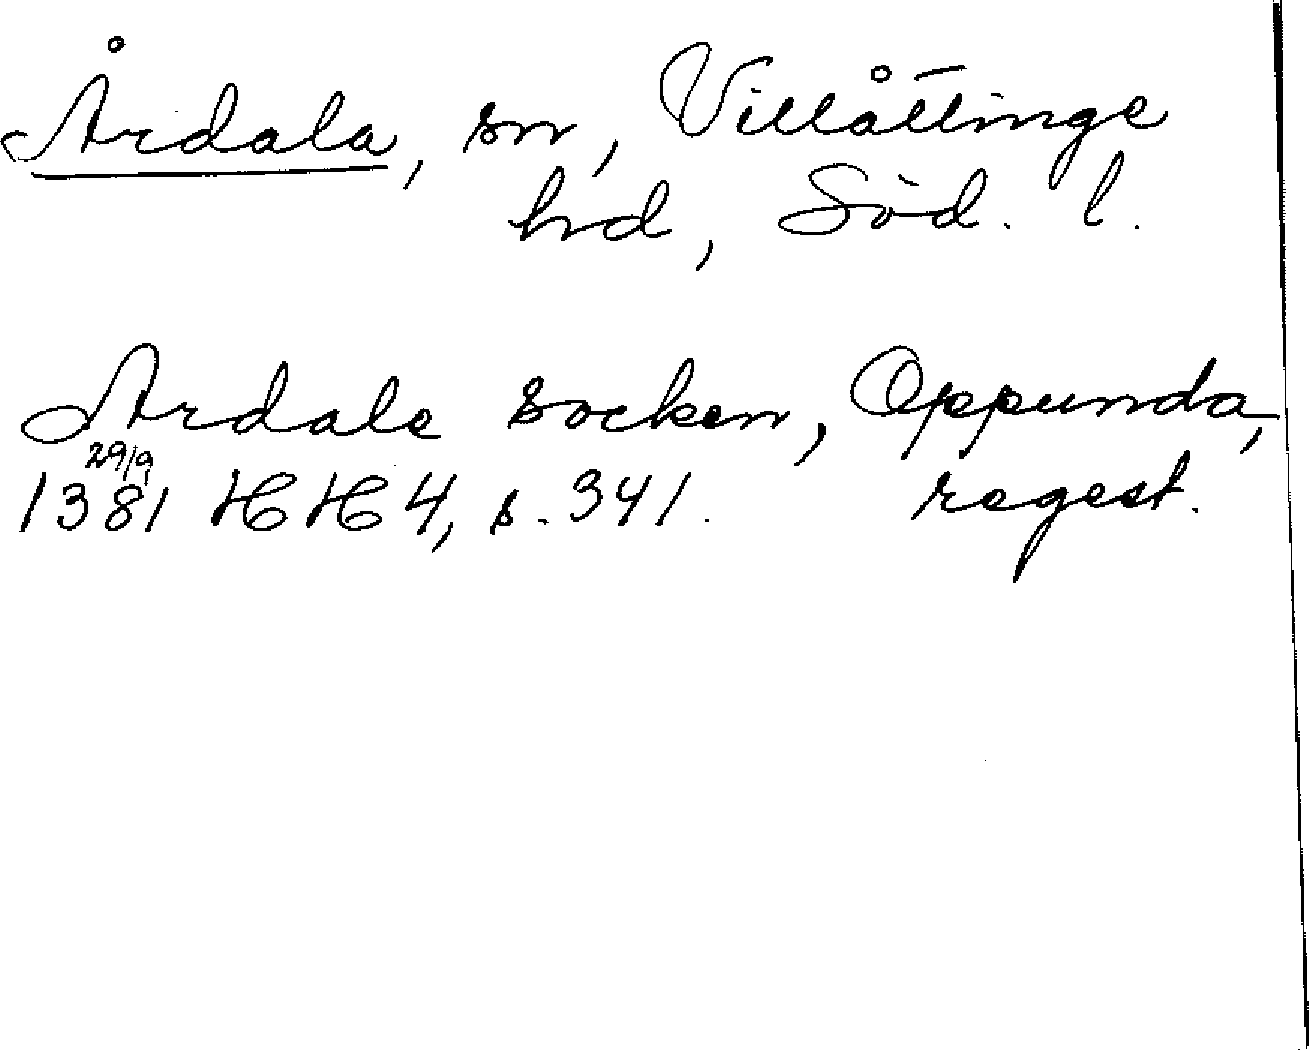 Årdala, sn, Villåttinge
hd, Söd. l.
Ardale socken, Oppunda,
29/9
1381 HH 4, s. 341. regest.